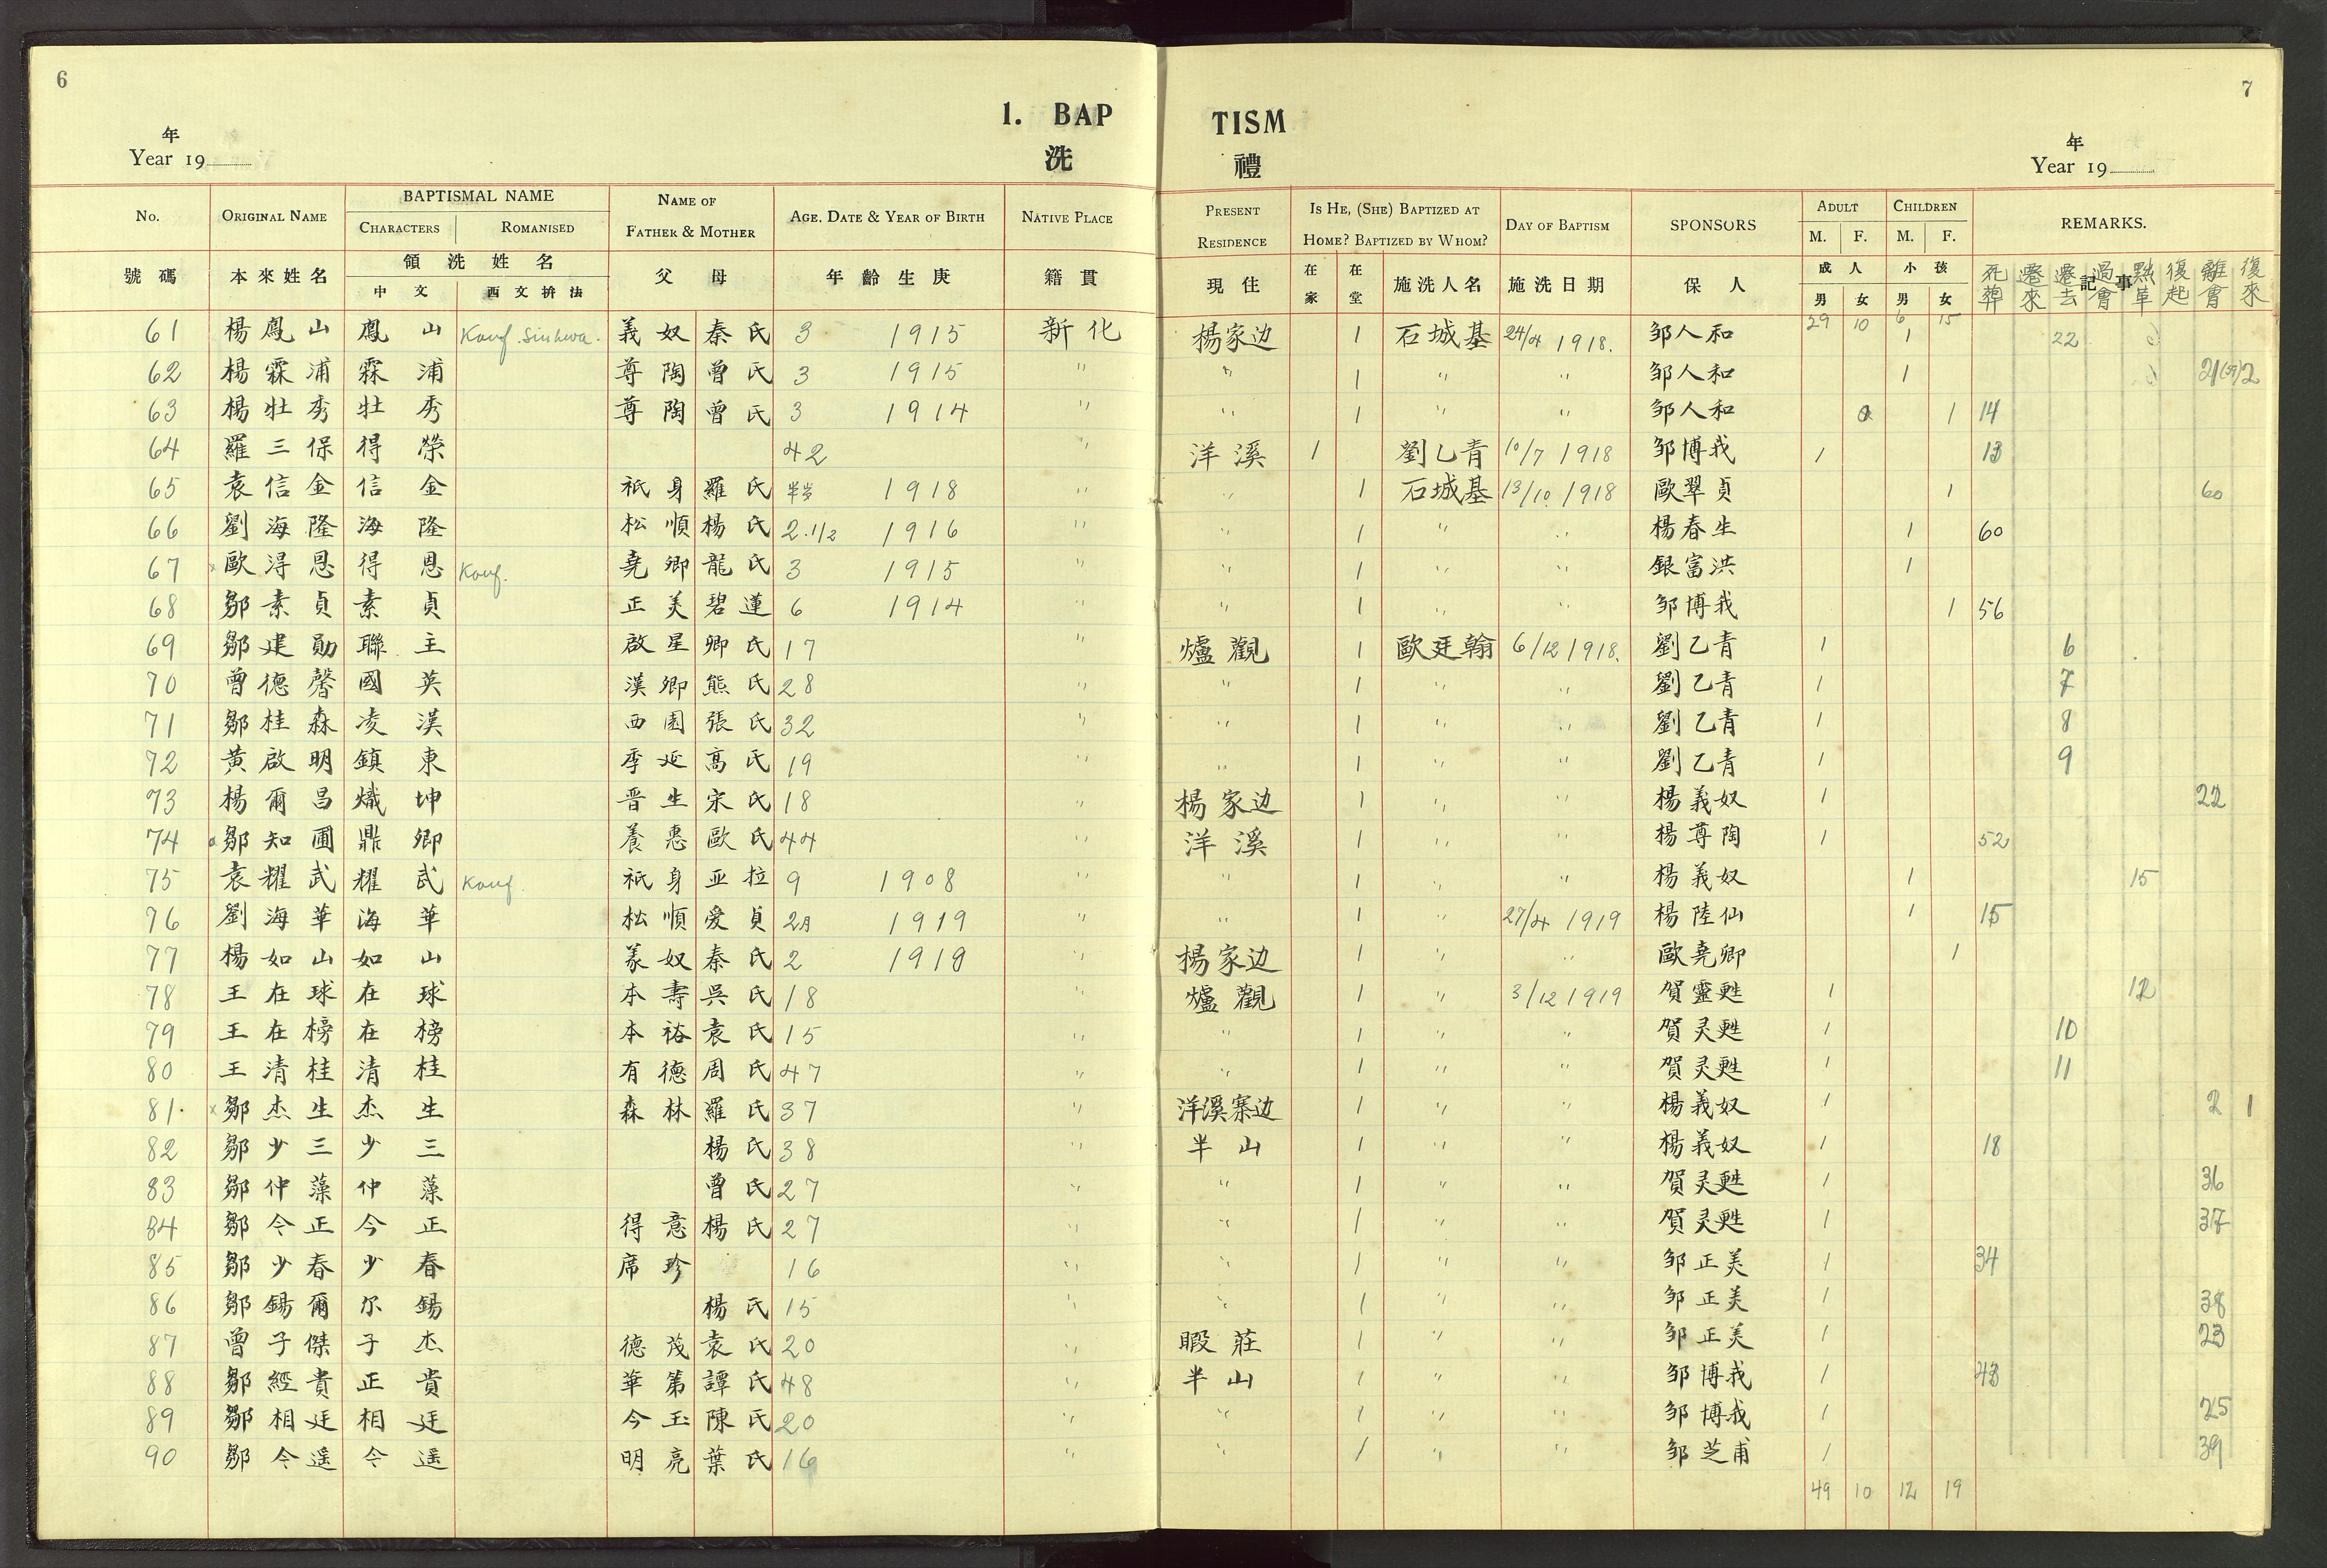 6
7
1. BAP TISM
洗 禮
年
Year 19
年
Year 19
No. ORIGINAL NAME BAPTISMAL NAME CHARACTERS ROMANISED NAME OF FATHER & MOTHER AGE. DATE & YEAR OF BIRTH NATIVE PLACE PRESENT RESIDENCE IS HE, (SHE) BAPTIZED AT HOME? BAPTIZED BY WHOM? DAY OF BAPTISM SPONSORS ADULT M. F. CHILDREN M. F. REMARKS.
號碼 本來姓名 領洗姓名 中文 西文拚法 父母 年齡生庚 籍貫 現住 在家 在堂 施洗人名 施洗日期 保人 成人 男 女 小孩 男 女 記事 死葬 遷來 遷去 過會 黜革 復起 離會 復來
29 10 6 15
61 楊鳳山 鳳山 Konf. Sinhwa. 義奴 秦氏 3 1915 新化 楊家边 1 石城基 24/4 1918. 邹人和 1 22
62 楊霖浦 霖浦 尊陶 曾氏 3 1915 " " 1 " " 邹人和 1 2
63 楊牡秀 牡秀 尊陶 曾氏 3 1914 " " 1 " " 邹人和 1 14
64 羅三保 得榮 42 " 洋溪 1 劉乙青 10/7 1918 邹博我 1 13
65 袁信金 信金 祇身 羅氏 半岁 1918 " " 1 石城基 13/10. 1918 歐翠貞 1 60
66 劉海隆 海隆 松順 楊氏 2.1/2 1916 " " 1 " " 楊春生 1 60
67 x 歐淂恩 得恩 Konf. 堯卿 龍氏 3 1915 " " 1 " " 銀富洪 1
68 鄒素貞 素貞 正美 碧蓮 6 1914 " " 1 " " 邹博我 1 56
69 鄒建勛 聯主 啟星 卿氏 17 " 爐觀 1 歐廷翰 6/12 1918. 劉乙青 1 6
70 曾德馨 國英 漢卿 熊氏 28 " " 1 " " 劉乙青 1 7
71 鄒桂森 凌漢 西園 張氏 32 " " 1 " " 劉乙青 1 8
72 黃啟明 鎮東 季延 高氏 19 " " 1 " " 劉乙青 1 9
73 楊爾昌 熾坤 晋生 宋氏 18 " 楊家边 1 " " 楊義奴 1 22
74 鄒知圃 鼎卿 養惠 歐氏 44 " 洋溪 1 " " 楊尊陶 1 52
75 袁耀武 耀武 Konf. 祇身 亚拉 9 1908 " " 1 " " 楊義奴 1 15
76 劉海華 海華 松順 愛貞 2月 1919 " " 1 " 27/4 1919 楊陸仙 1 15
77 楊如山 如山 義奴 秦氏 2 1918 " 楊家边 1 " " 歐堯卿 1
78 王在球 在球 本壽 吳氏 18 " 爐觀 1 " 3/12 1919 賀靈甦 1 12
79 王在榜 在榜 本裕 袁氏 15 " " 1 " " 賀灵甦 1 10
80 王清桂 清桂 有德 周氏 47 " " 1 " " 賀灵甦 1 11
81. x 鄒杰生 杰生 森林 羅氏 37 " 洋溪寨边 1 " " 楊義奴 1 2 1
82 鄒少三 少三 楊氏 38 " 半山 1 " " 楊義奴 1 18
83 鄒仲藻 仲藻 曾氏 27 " " 1 " " 賀灵甦 1 36
84 鄒今正 今正 得意 楊氏 27 " " 1 " " 賀灵甦 1 37
85 鄒少春 少春 席珍 16 " " 1 " " 邹正美 1 34
86 鄒錫爾 尔錫 楊氏 15 " " 1 " " 邹正美 1 38
87 曾子傑 子杰 德茂 袁氏 20 " 暇莊 1 " " 邹正美 1 23
88 鄒經貴 正貴 華第 譚氏 48 " 半山 1 " " 邹博我 1 43
89 鄒相廷 相廷 今玉 陳氏 20 " " 1 " " 邹博我 1 25
90 鄒令遥 令遥 明亮 葉氏 16 " " 1 " " 邹芝甫 1 39
49 10 12 19